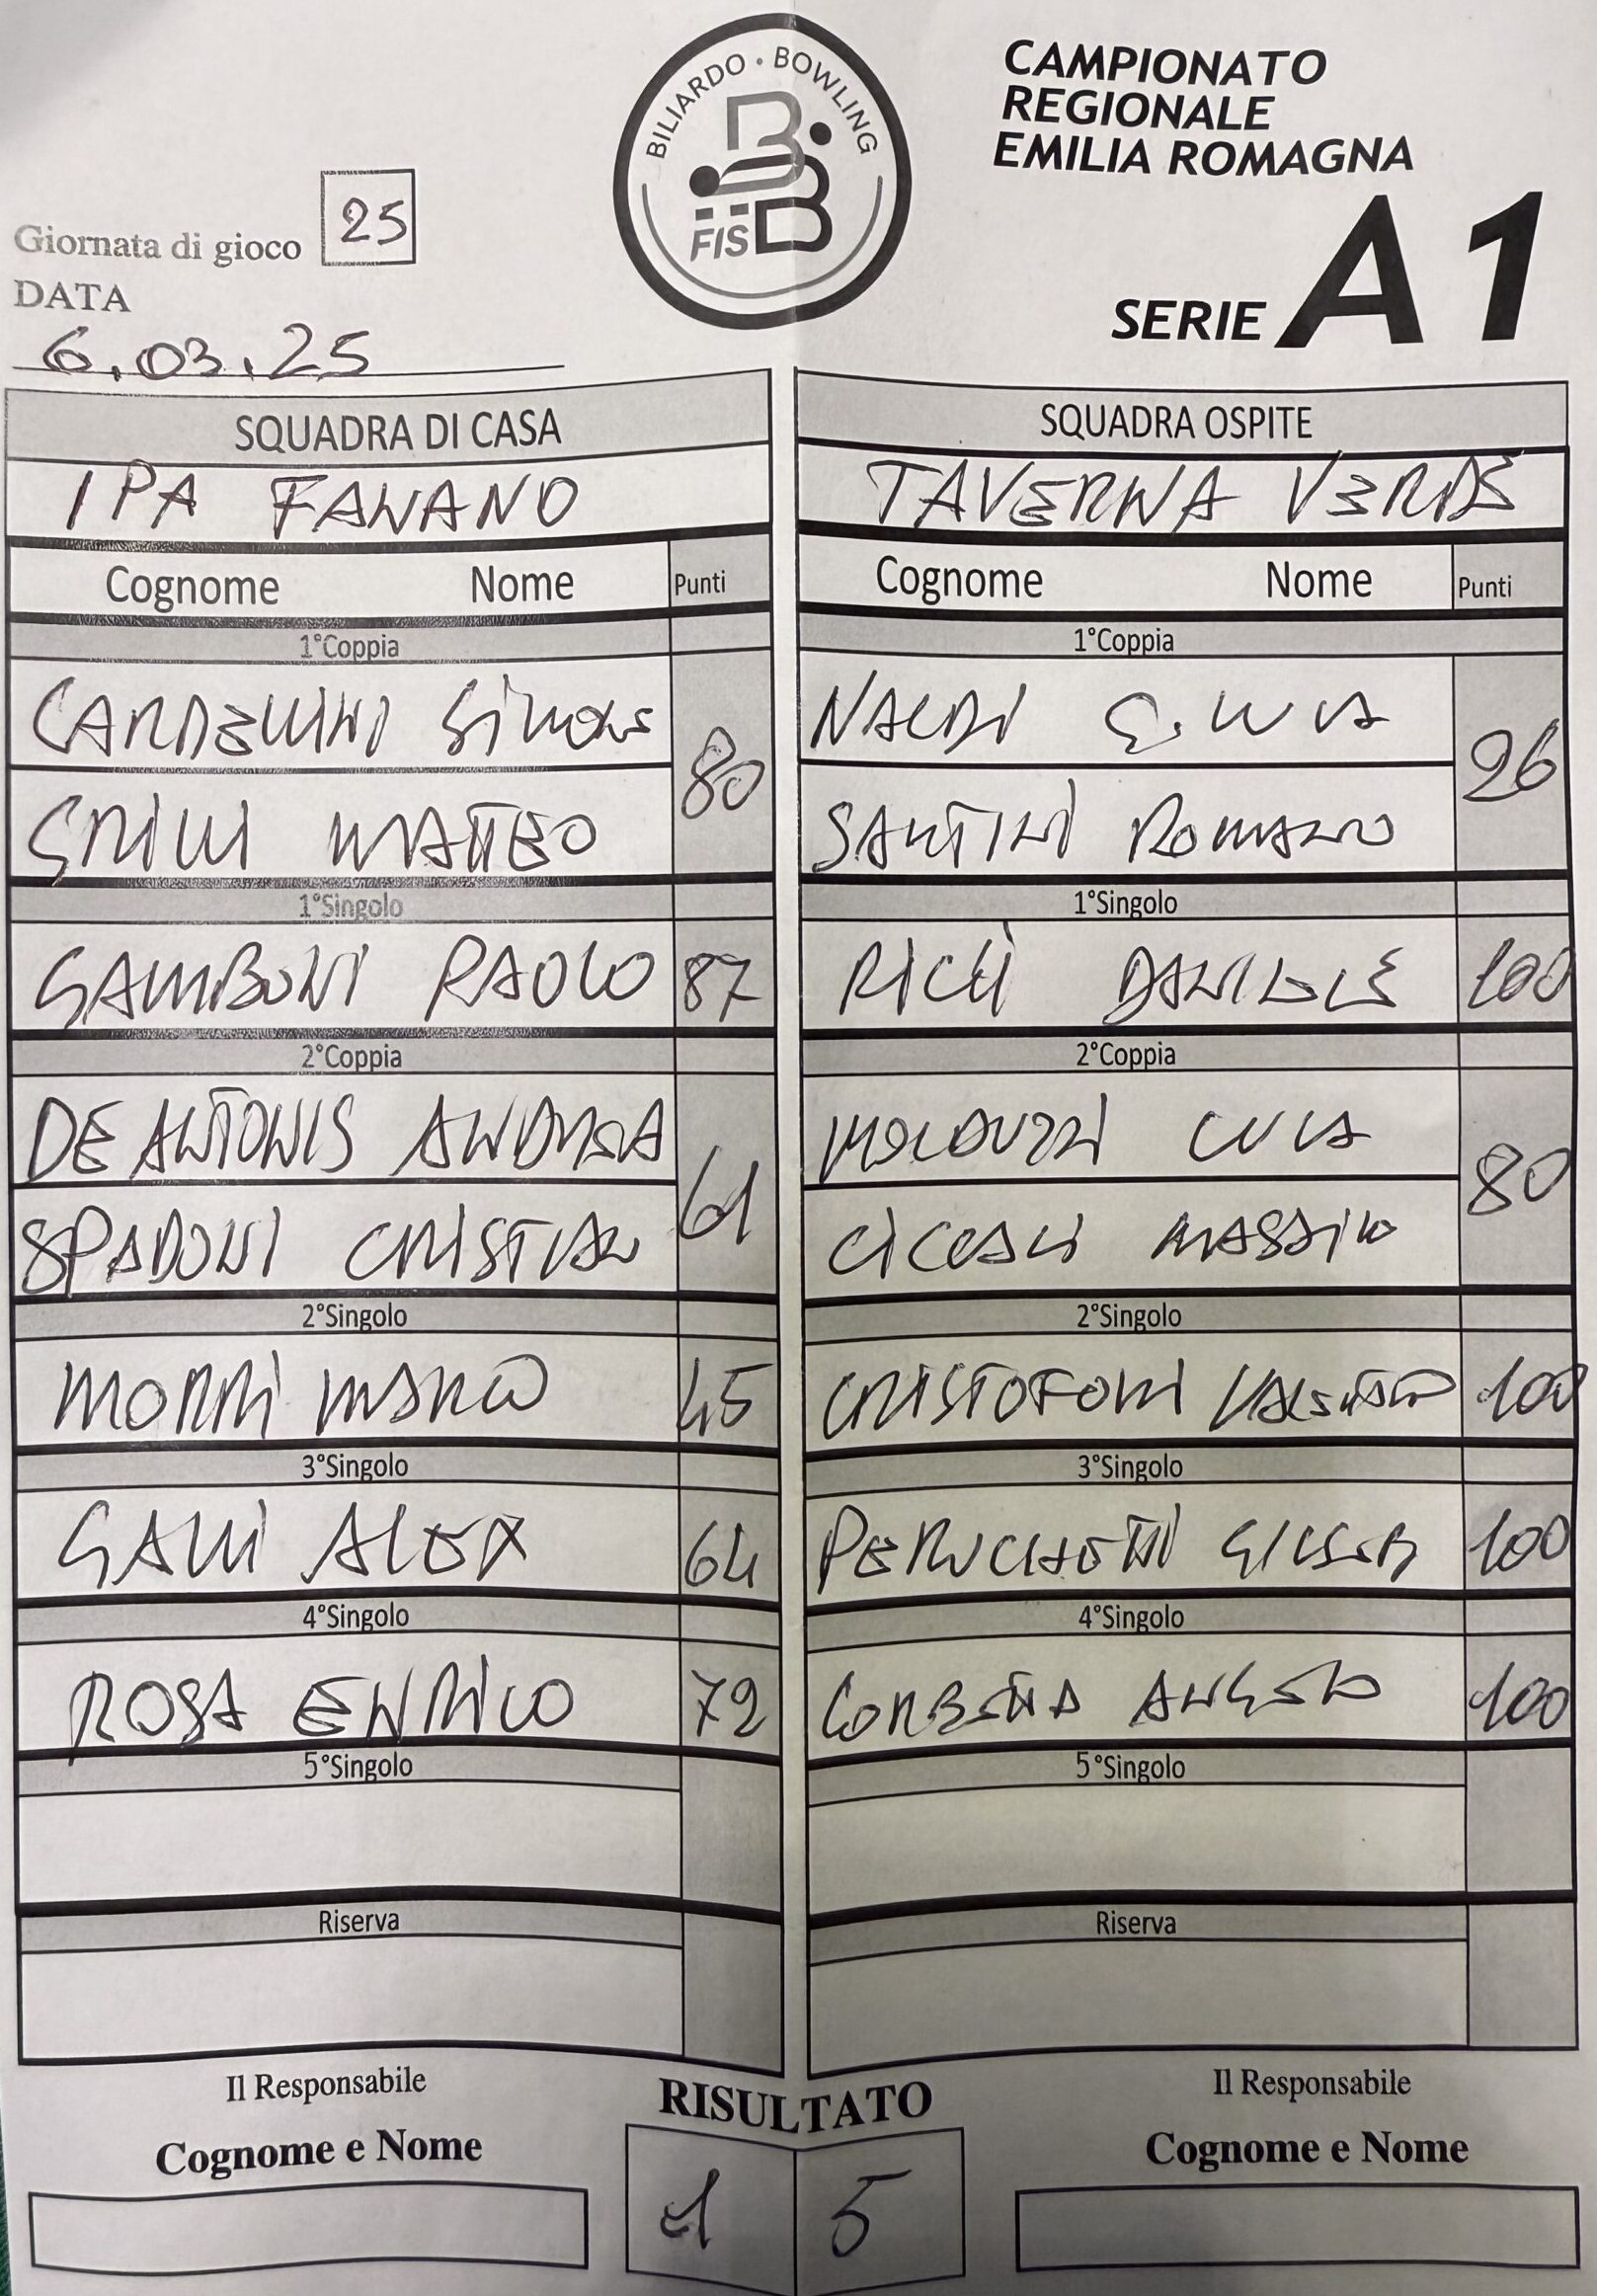 BILIARDO • BOWLING
FISBB
CAMPIONATO
REGIONALE
EMILIA ROMAGNA
SERIE A1
Giornata di gioco 25
DATA
6.03.25
SQUADRA DI CASA
IPA FANANO
Cognome Nome Punti
1°Coppia
CARDELLINI Simone
80
GRILLI MATTEO
1°Singolo
GAMBONI PAOLO 87
2°Coppia
DE ANTONIS ANDREA
61
SPADONI CRISTIAN
2°Singolo
MORRI MARCO 45
3°Singolo
GALLI ALEX 64
4°Singolo
ROSA ENRICO 72
5°Singolo
Riserva
Il Responsabile
Cognome e Nome
SQUADRA OSPITE
TAVERNA VERDE
Cognome Nome Punti
1°Coppia
NALDI
SANTINI ROMANO
1°Singolo
DANIELE 100
2°Coppia
LUCA
80
2°Singolo
CRISTOFORI 100
3°Singolo
100
4°Singolo
ANGELO 100
5°Singolo
Riserva
Il Responsabile
Cognome e Nome
RISULTATO
1 5